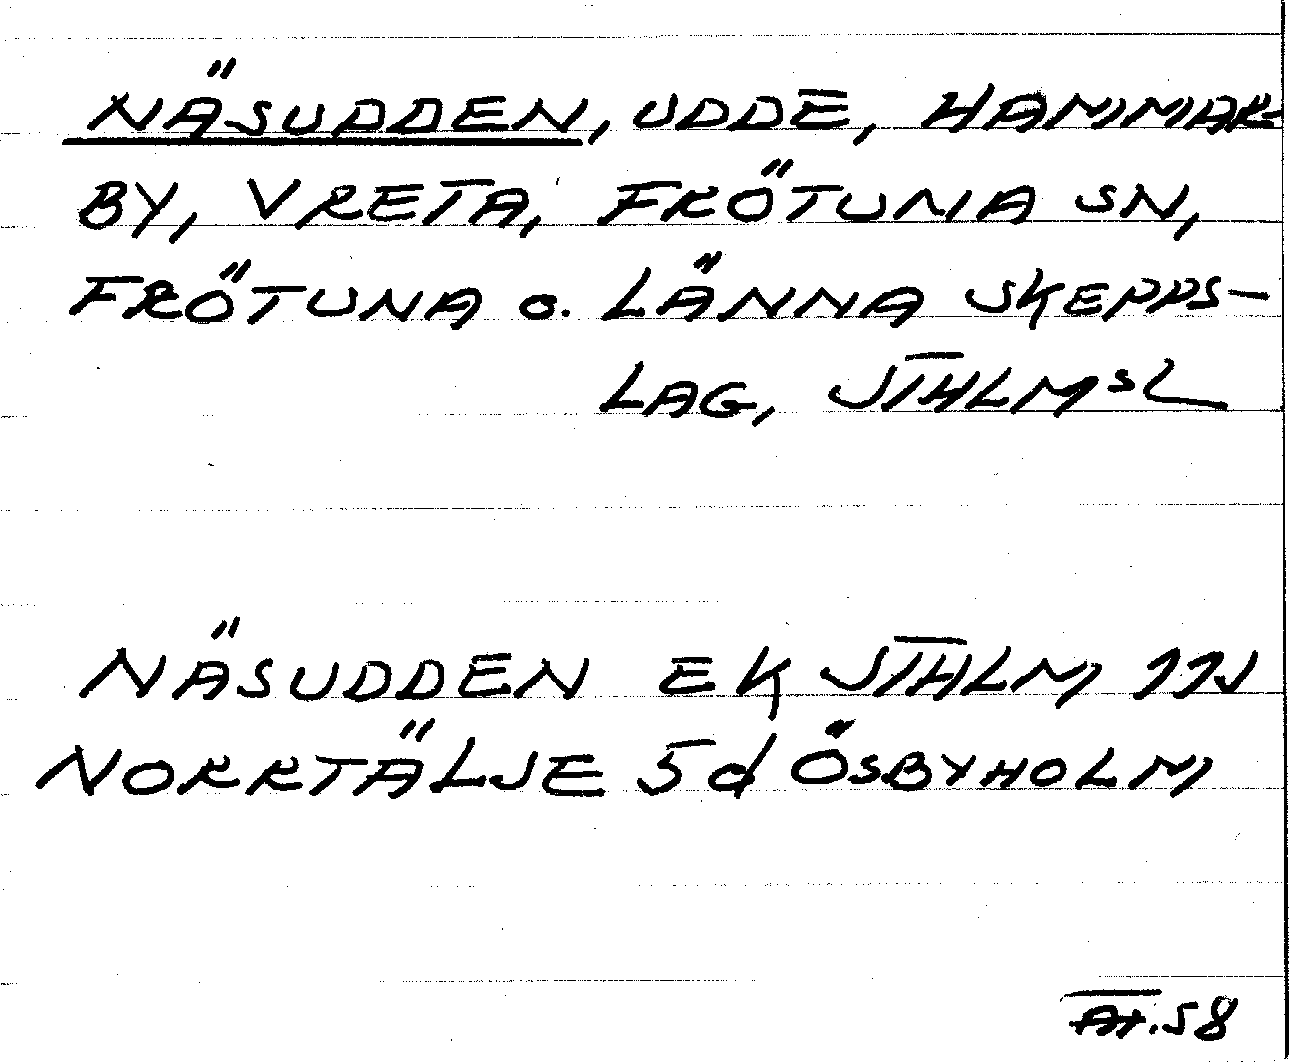 NÄSUDDEN, UDDE, HAMMAR-
BY, VRETA, FRÖTUNA SN,
FRÖTUNA o. LÄNNA SKEPPS-
LAG, STHLMSL
NÄSUDDEN EK STHLM 11J
NORRTÄLJE 5d ÖSBYHOLM
58